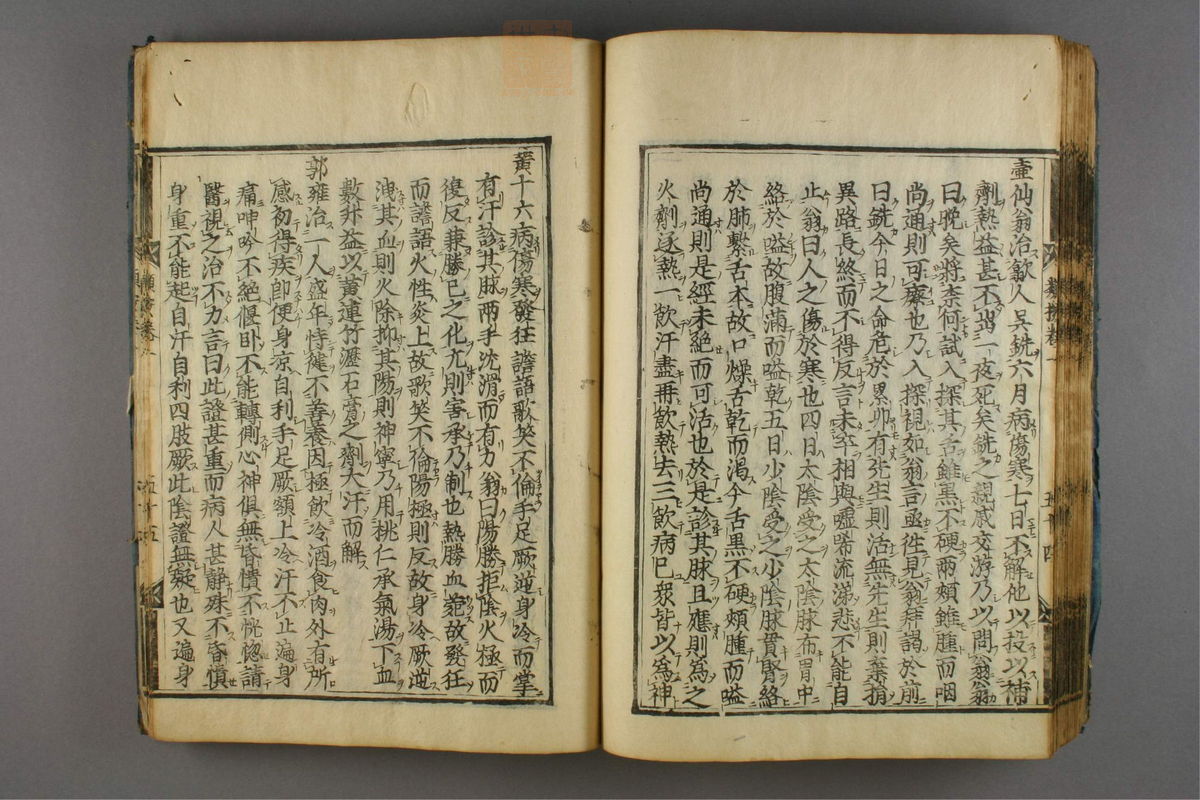 壷仙翁治歙人吳銑六月病傷寒七日不解他以投以補
劑熱益甚不出一夜死矣銑之親戚交游乃以問翁翁
曰晚矣將柰何試入探其舌雖黑不硬兩頰雖腫而咽
尚通則可療也乃入探視如翁言亟徃見翁拜謁於前
曰銑今日之命危於累卵有先生則活無先生則棄捐
異路長終而不得反言未卒相與噓唏流涕悲不能自
止翁曰人之傷於寒也四日太陰受之太陰脉布胃中
絡於嗌故腹滿而嗌乾五日少陰受之少陰脉貫腎絡
於肺繫舌本故口燥舌乾而渴今舌黑不硬頰腫而嗌
尚通則是經未絕而可活也於是診其脉且應則爲之
火劑逐熱一飲汗盡再飲熱去三飲病已衆皆以爲神
黃十六病傷寒發狂譫語歌笑不倫手足厥逆身冷而掌
有汗診其脉兩手沈滑而有力翁曰陽勝拒陰火極而
復反兼勝已之化亢則害承乃制也熱勝血菀故發狂
而譫語火性炎上故歌笑不倫陽極則反故身冷厥逆
洩其血則火除抑其陽則神寧乃用桃仁承氣湯下血
數升益以黃連竹瀝石膏之劑大汗而解
郭雍治一人盛年恃健不善養因極飲冷酒食肉外有所
感初得疾卽便身凉自利手足厥額上冷汗不止遍身
痛呻吟不絕偃臥不能轉側心神俱無昏憒不恍惚請
醫視之治不力言曰此證甚重而病人甚靜殊不昏憒
身重不能起自汗自利四肢厥此陰證無疑也又遍身